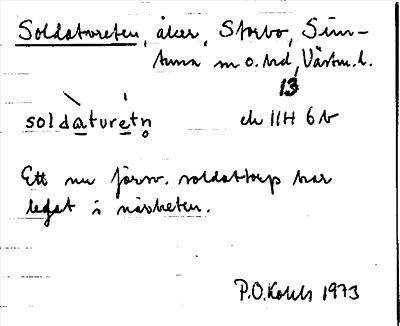 Soldatvreten, åker, Storbo, Sim-
tuna sn o. hd, Västm. l.
13
soldatvretn
ek 11H 6b
Ett nu försv. soldattorp har
legat i närheten.
P.O. 1973